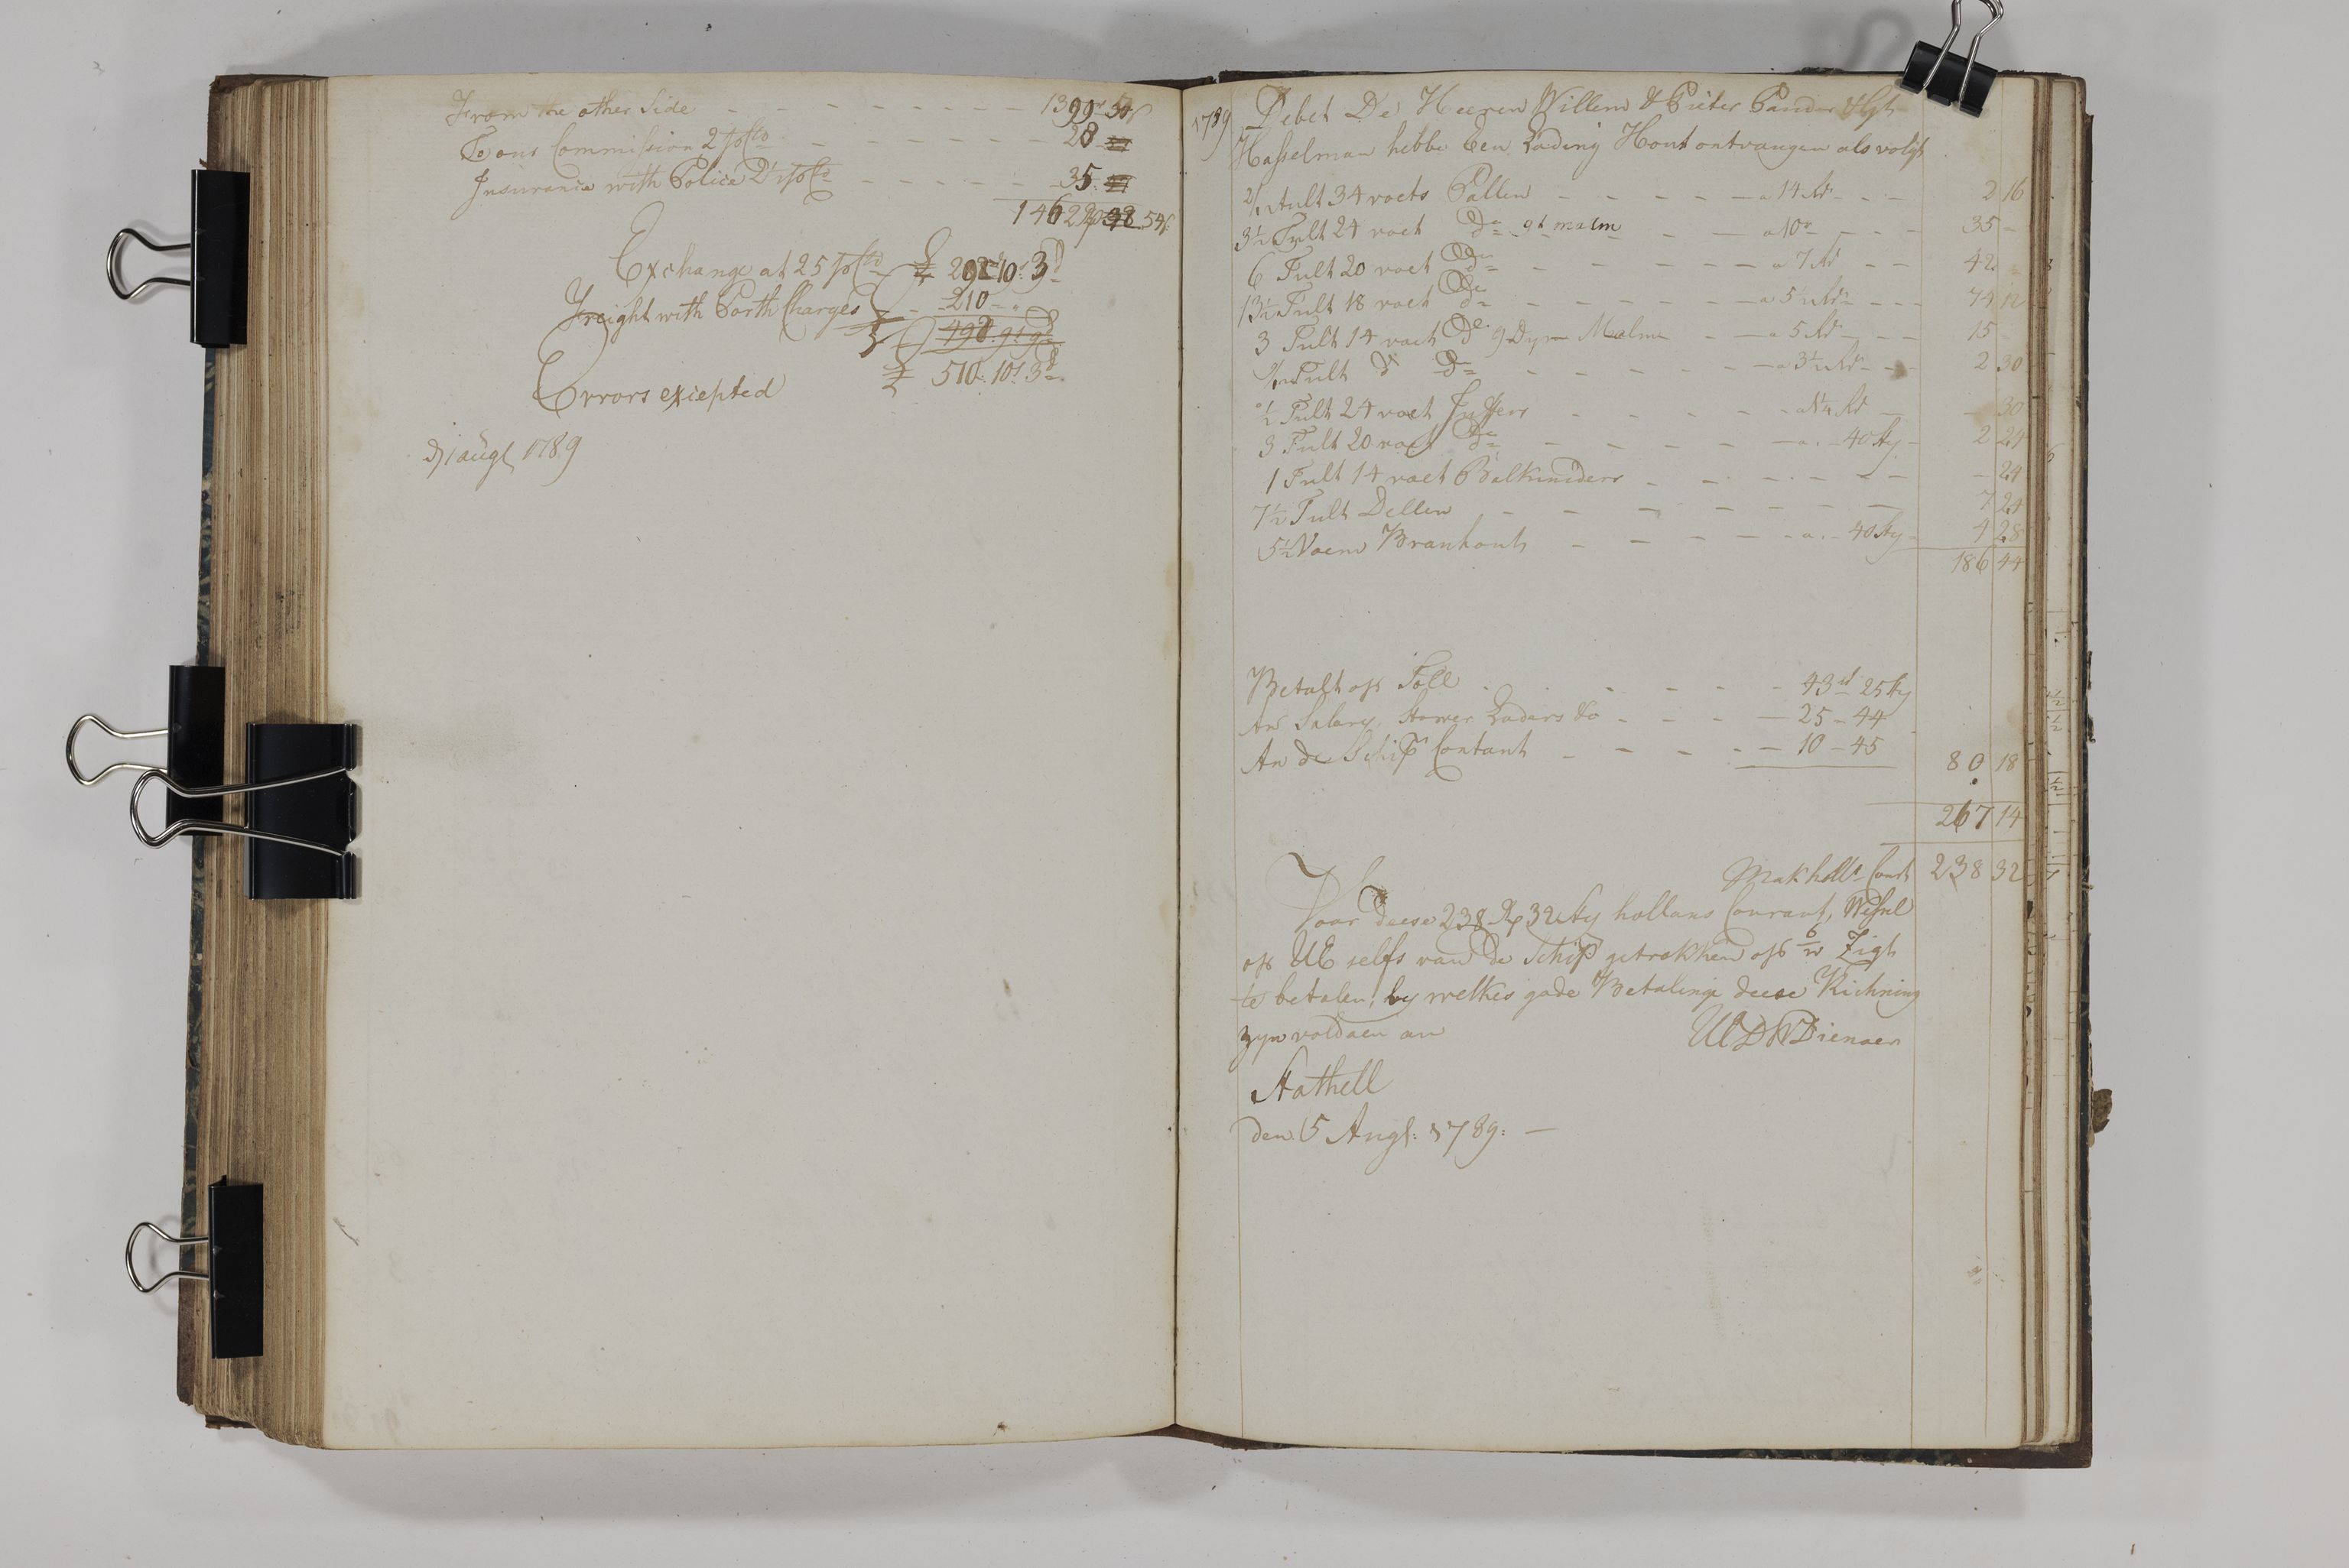 From the other Side - - - - - - - - - 1399 54
To our Commission 2 pCto - - - - - - - 28
Insurance with Police 2½ pCto - - - - - 35
1462 54
Exchange at 25 pCto £ 292 10s 3d
Freight with Porth Charges - 210 - "
498. 9s 9d
Errors exiepted £ 510. 10s 3d
d. 1 augt 1789
1789 Debet De Heeren Willem & Pieter
Hasselman hebbe Een Lading Hout ontvangen als volgt
2/12 tult 34 voets Ballen - - - - - a 14 Rd - - - 2 16
3½ Tult 24 voet do 9t malm - - a 10 - - - 35 -
6 Tult 20 voet do - - - - - a 7 Rd - - 42
13½ Tult 18 voet do - - - - - a 5½ Rd - - - 74 12
3 Tult 14 voet do 9 Dym Malm - - a 5 Rd - - - 15 -
Tult do do - - - - - a 3½ Rd - - 2 30
½ Tult 24 voet Juffers - - - - - a 1¼ Rd - - 30
3 Tult 20 voet do - - - - - a - 40 sty - 2 24
1 Tult 14 voet Balkineders - - - - - - - 24
7½ Tult Dellen - - - - - - - - 7 24
5½ Voem Branhout - - - - - a. - 40 sty - 4 28
186 44
Betalt op Toll - - - - - 43 rd 25 sty
An Salary, Stower Laders &o - - - - 25 - 44
An de Schip Contant - - - - - 10 - 45
80 18
267 14
Mak holls Cour 238 32
Voor deese 238 Rd 32 sty hollans Courant, Wissel
op UE selfs van de Schip getrokken op 6/w Zigt
te betalen, by welkes gode Betalinge deese Richning
zyn voldaen an UEDWDienaer
Stathell
den 5 Augt: 1789: -